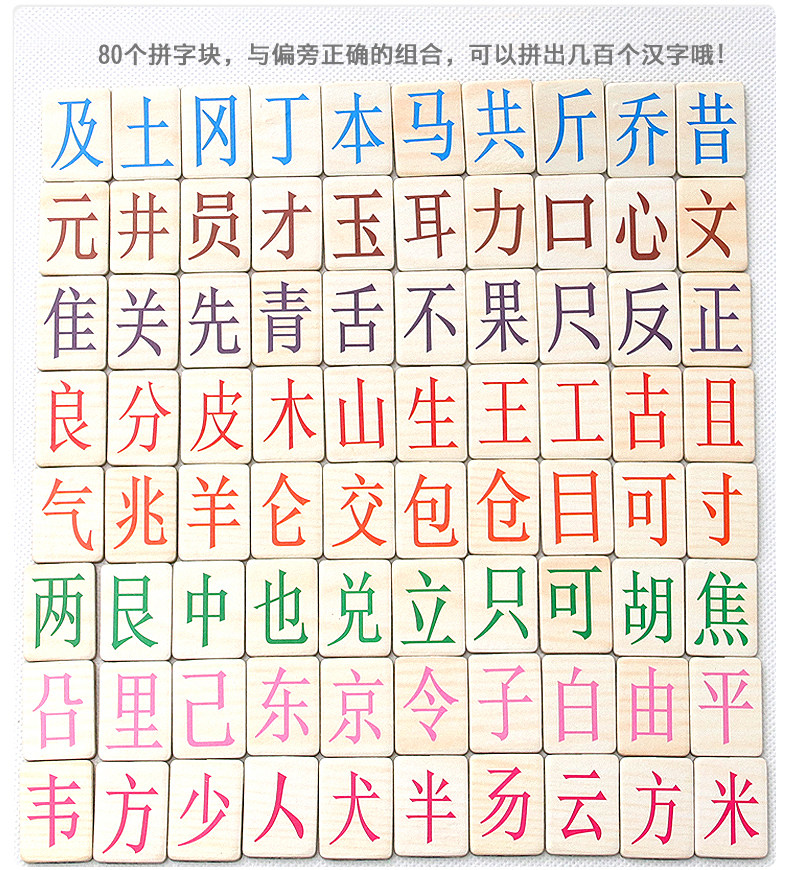 80个拼字块，与偏旁正确的组合，可以拼出几百个汉字哦！
及土冈丁本马共斤乔昔
元井员才玉耳力口心文
隹关先青舌不果尺反正
良分皮木山生王工古且
气兆羊仑交包仓目可寸
两艮中也兑立只可胡焦
㕣里己东京令子白由平
韦方少人犬半㐆云方米